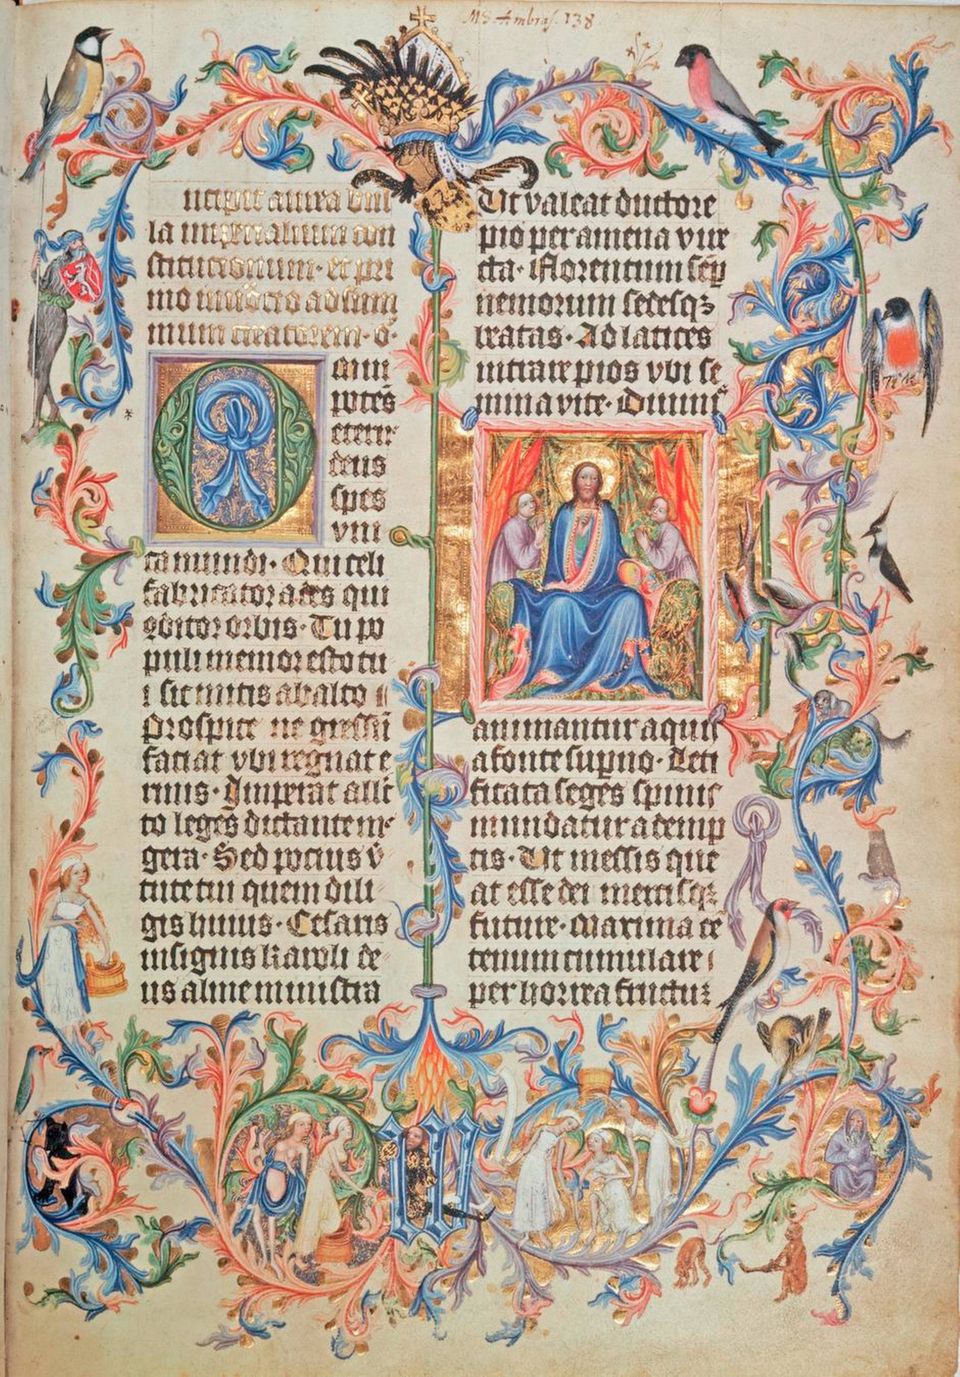 MS. Ambras. 138.
incipit aurea bul
la imperialium con
stitucionum · et pri
mo invocacio ad sum
mum creatorem · O
mni
potēs
eterne
deus
spes
vni
ca mundi · Qui celi
fabricator ades qui
9ditor orbis · Tu po
puli memor esto tui
sic mitis ab alto
prospice ne gressū
faciat vbi regnat e
rinis · Imperat alle
to leges dictante me
gera · Sed pocius v̄
tute tui quem dili
gis huius · Cesaris
insignis karoli de
us alme ministra
Ut valeat ductore
pio per amena vire
cta · Florentum sēp
nemorum sedesqȝ
beatas · Ad latices
intrare pios vbi se
mina vite · Diuinis
animantur aquis
a fonte sup̄no · Leti
ficata seges spinis
mundatur ademp
tis · Ut messis que
at esse dei mercisqȝ
future · Maxima cē
tenum cumulare
per horrea fructū
W